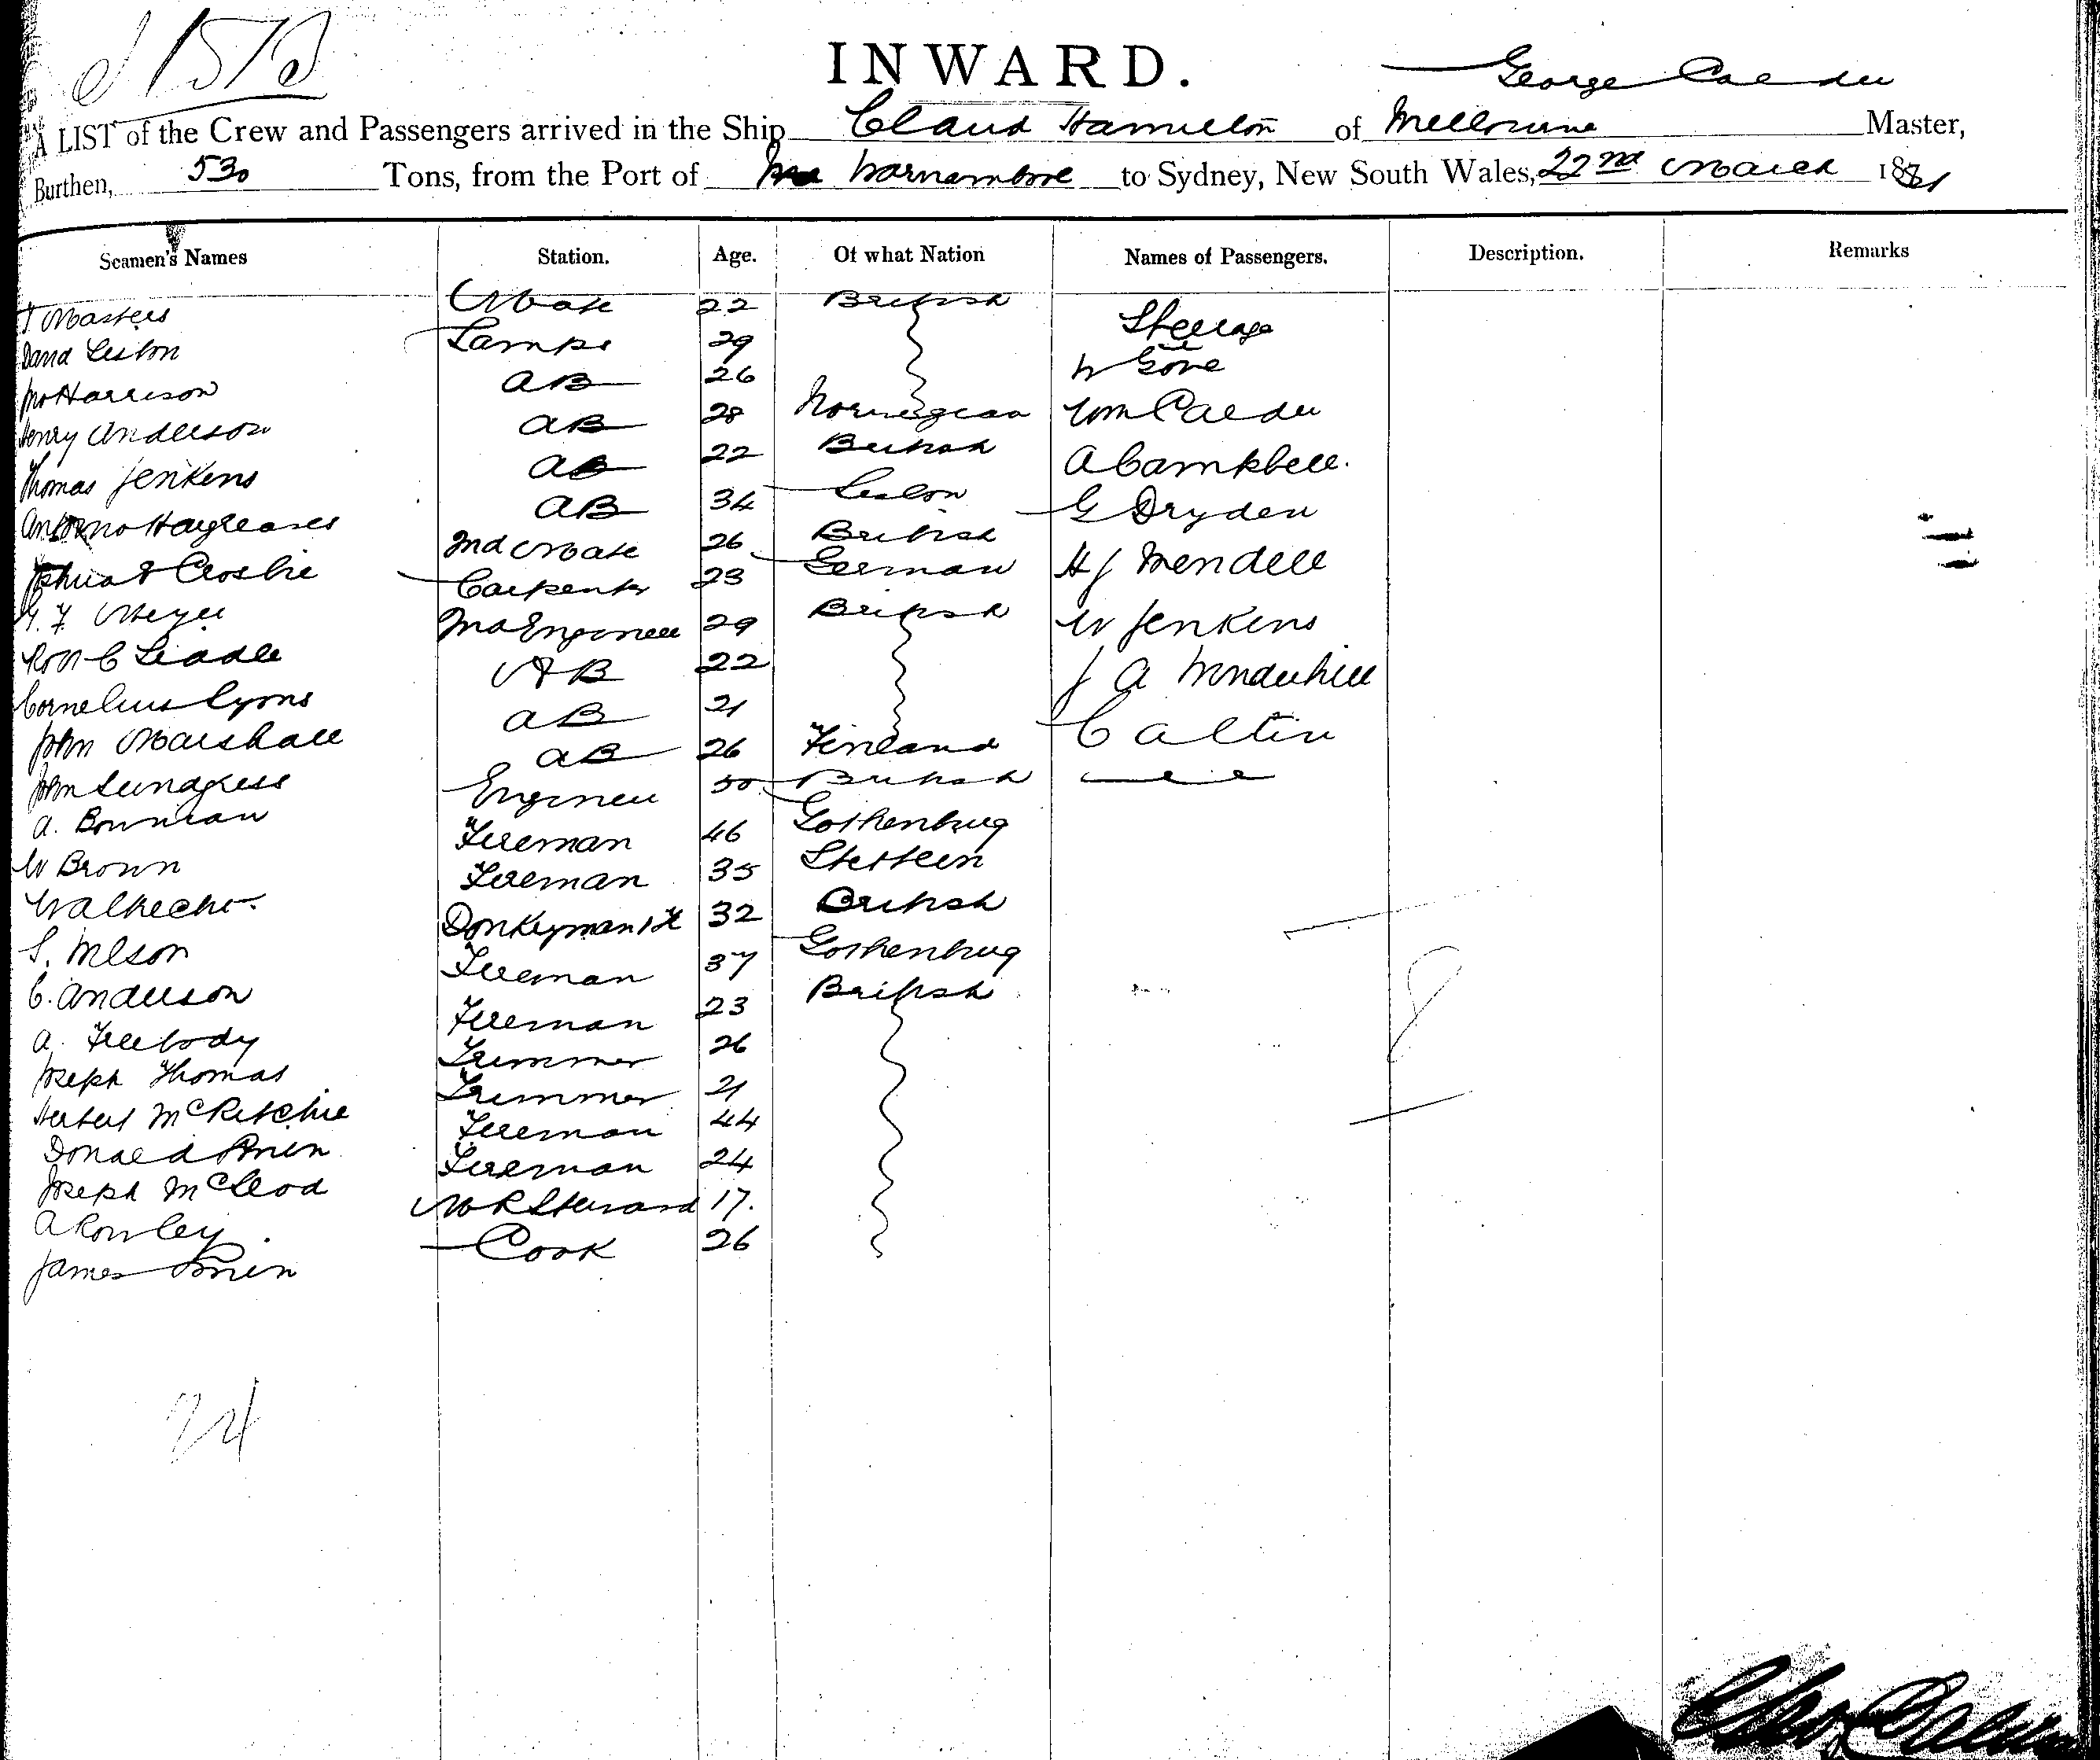 INWARD.
George Calder
A LIST of the Crew and Passengers arrived in the Ship Claud Hamilton of Melbourne Master,
Burthen, 530 Tons, from the Port of Warnambool to Sydney, New South Wales, 22nd March 1881
Seamen's Names Station. Age. Of what Nation Names of Passengers. Description. Remarks
T Masters Mate 22 British Steerage
David Liston Lamps 29 W Gove
Jno Harrison AB 26
Henry Anderson AB 28 Norwegian Wm Calder
Thomas Jenkens AB 22 British A Campbell.
Antonio Haygreaves AB 34 G Dryden
Joshua Crosbie 2nd Mate 26 British H J Wendell
Meyer Carpenter 23 German W Jenkens
Robt C Liddle 2nd Engineer 29 British J A Wonderhill
Cornelius Lyons AB 22 C Altin
John Marshall AB 21
John Lundgress AB 26 Finland
A. Bowman Engineer 50 British
W Brown Fireman 46 Gothenburg
Fireman 35 Stettein
S. Nilson Donkeyman 32 British
C. Anderson Fireman 37 Gothenburg
A. Freebody Fireman 23 British
Joseph Thomas Trimmer 26
Herbert McRitchie Trimmer 21
Donald Fireman 44
Joseph McLeod Fireman 24
A Rowley M R Steward 17.
James Cook 26
24
8